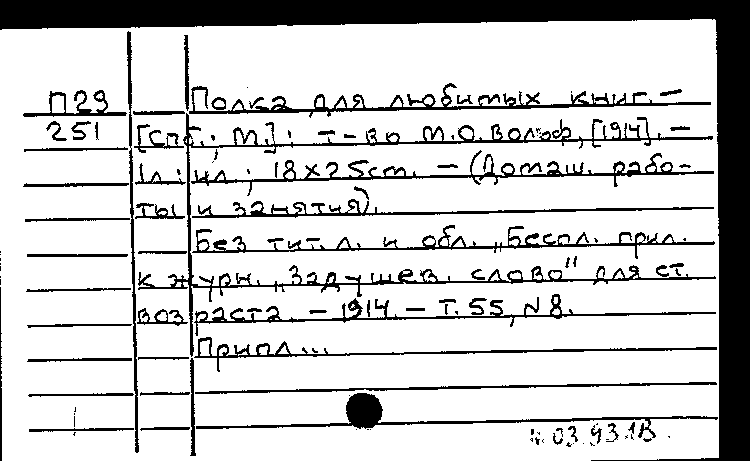 П29 Полка для любимых книг. —
251 [Спб.; М.]: т-во М.О. Вольф, [1914]. —
1л: ил; 18×25см. — (Домаш. рабо-
ты и занятия).
Без тит. л. и обл. „Беспл. прил.
к журн. „Задушев. слово" для ст.
возраста. — 1914. — Т. 55, N 8.
Припл...
03.93.1В